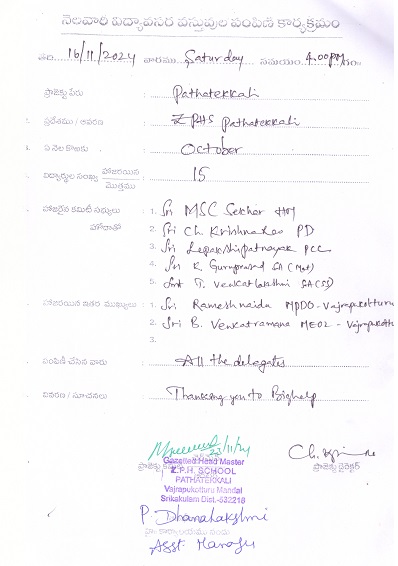 నెలవారీ విద్యావసర వస్తువుల పంపిణీ కార్యక్రమం
తేది: 16/11/2024 వారము Saturday సమయం 4.00PM గం
ప్రాజెక్టు పేరు : Pathatekkali
ప్రదేశము / ఆవరణ : ZPHS Pathatekkali
ఏ నెల కొరకు : October
విద్యార్థుల సంఖ్య హాజరయిన / మొత్తము : 15
హాజరైన కమిటీ సభ్యులు : 1. Sri MSC Sekhar HM
హోదాతో 2. Sri Ch. Krishnarao PD
3. Sri Lepakshipatnayak PCC
4. Sri K. Guruprasad SA (Mat)
5. Smt T. Venkatlakshmi SA(SS)
హాజరయిన ఇతర ముఖ్యులు : 1. Sri Rameshnaidu MPDO-Vajrapukotturu
2. Sri B. Venkatramana MEO2 - Vajrapukotturu
3.
పంపిణీ చేసిన వారు : All the delegates
వివరణ / సూచనలు : Thanking you to Bighelp
23/11/24
Gazetted Head Master
Z.P.H. SCHOOL
ప్రాజెక్టు డైరెక్టర్
PATHATEKKALI
Vajrapukotturu Mandal
Srikakulam Dist.-532218
P. Dhanalakshmi
Asst. Manager